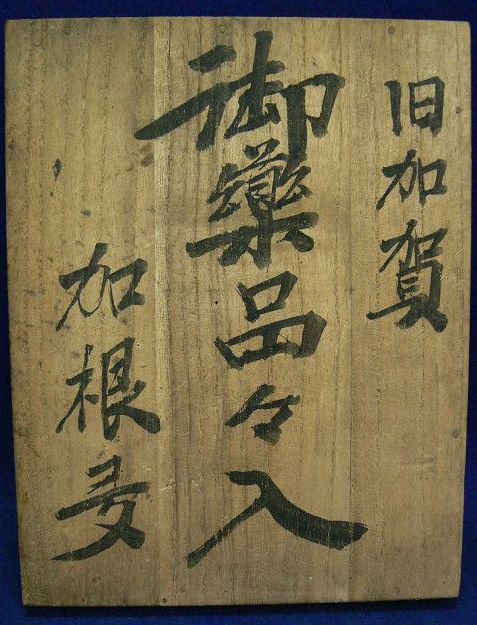 旧加賀
御薬品々入
加根支